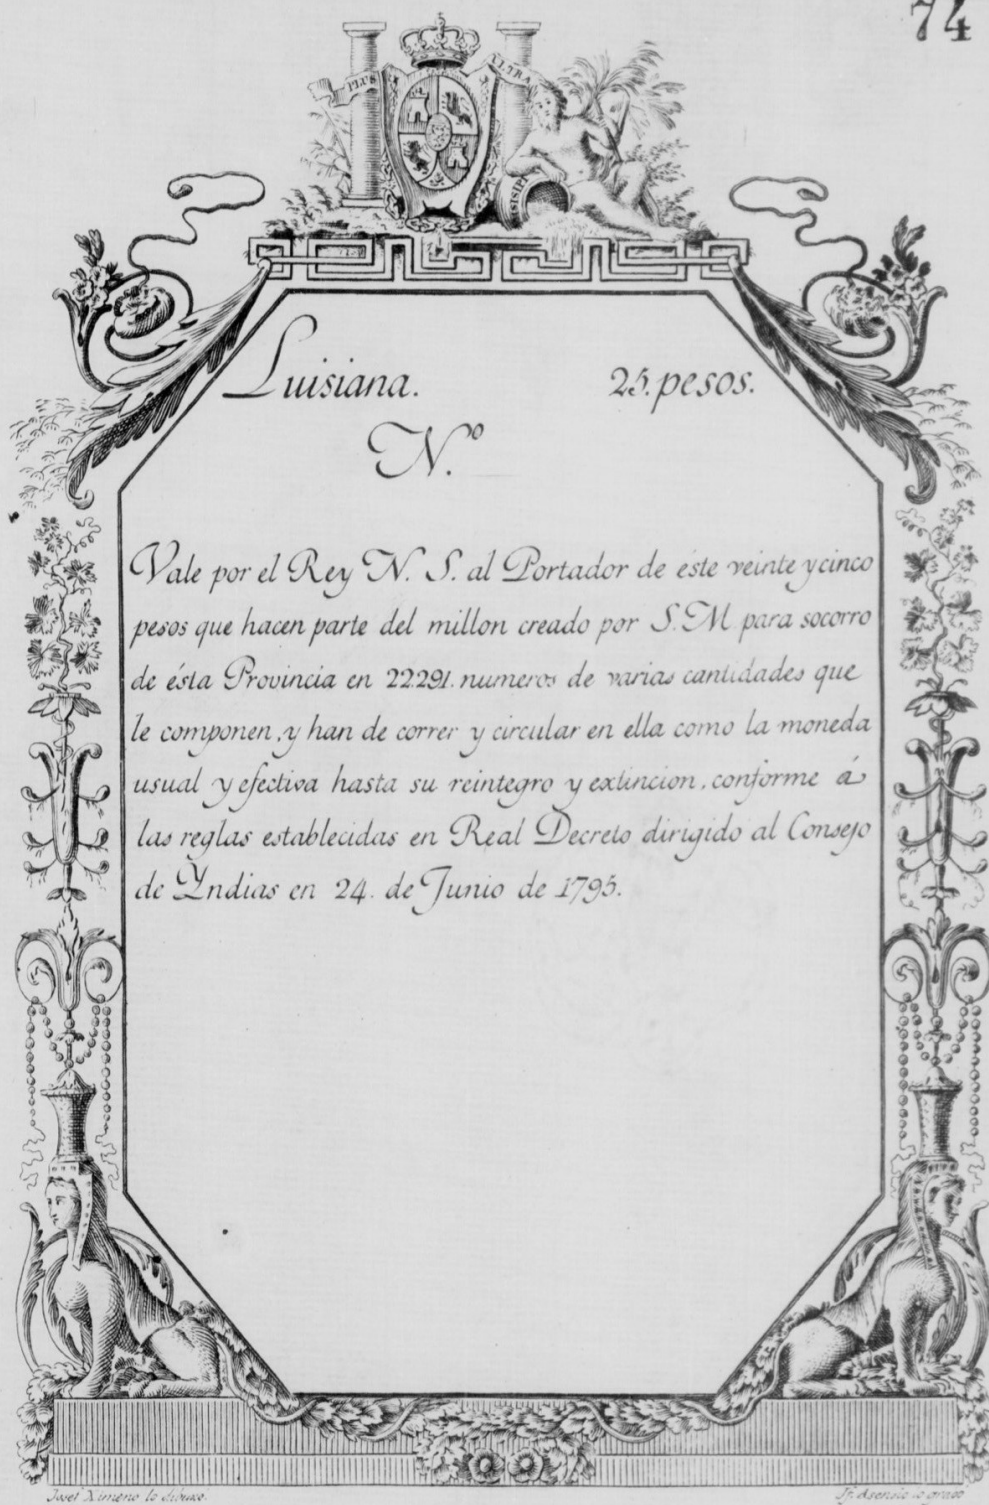 74
PLUS ULTRA
MISISIPI
Luisiana. 25. pesos.
N.º
Vale por el Rey N. S. al Portador de éste veinte y cinco
pesos que hacen parte del millon creado por S. M. para socorro
de ésta Provincia en 22291. numeros de varias cantidades que
le componen, y han de correr y circular en ella como la moneda
usual y efectiva hasta su reintegro y extincion, conforme á
las reglas establecidas en Real Decreto dirigido al Consejo
de Yndias en 24. de Junio de 1795.
Josef Ximeno lo dibuxo. Jf. Asensio lo gravó